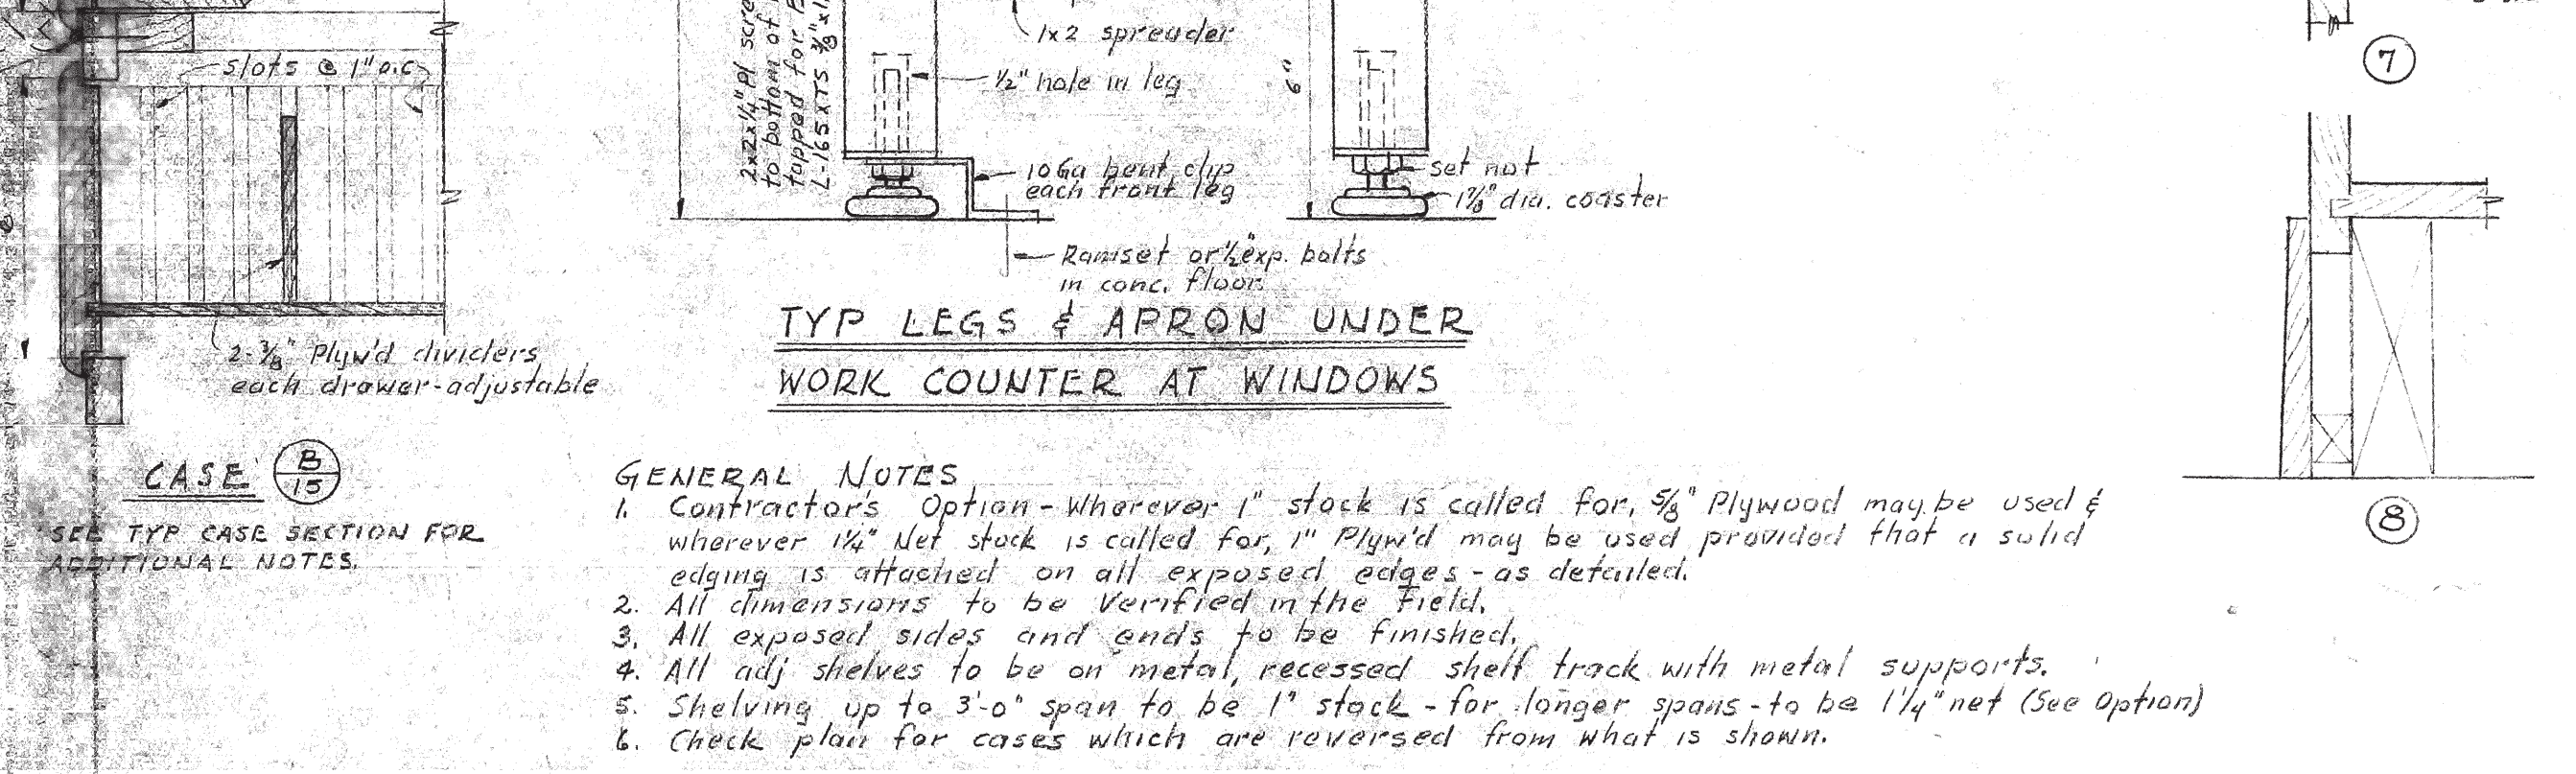 slots @ 1" o.c.
2-3/8" Plyw'd dividers
each drawer-adjustable
CASE B/15
SEE TYP CASE SECTION FOR
ADDITIONAL NOTES.
2x2x1/4 Pl
to bottom of
tapped for
L-165xTS 3/8"
1x2 spreader
1/2" hole in leg
10Ga bent clip
each front leg
Ramset or 1/2" exp. bolts
in conc. floor.
6"
set nut
1 7/8" dia. coaster
TYP LEGS & APRON UNDER
WORK COUNTER AT WINDOWS
GENERAL NOTES
1. Contractor's Option - Wherever 1" stock is called for, 5/8" Plywood may be used &
wherever 1 1/4" Net stock is called for, 1" Plyw'd may be used provided that a solid
edging is attached on all exposed edges - as detailed.
2. All dimensions to be Verified in the Field.
3. All exposed sides and ends to be finished.
4. All adj shelves to be on metal, recessed shelf track with metal supports.
5. Shelving up to 3'-0" span to be 1" stock - for longer spans - to be 1 1/4" net (See Option)
6. Check plan for cases which are reversed from what is shown.
7
8